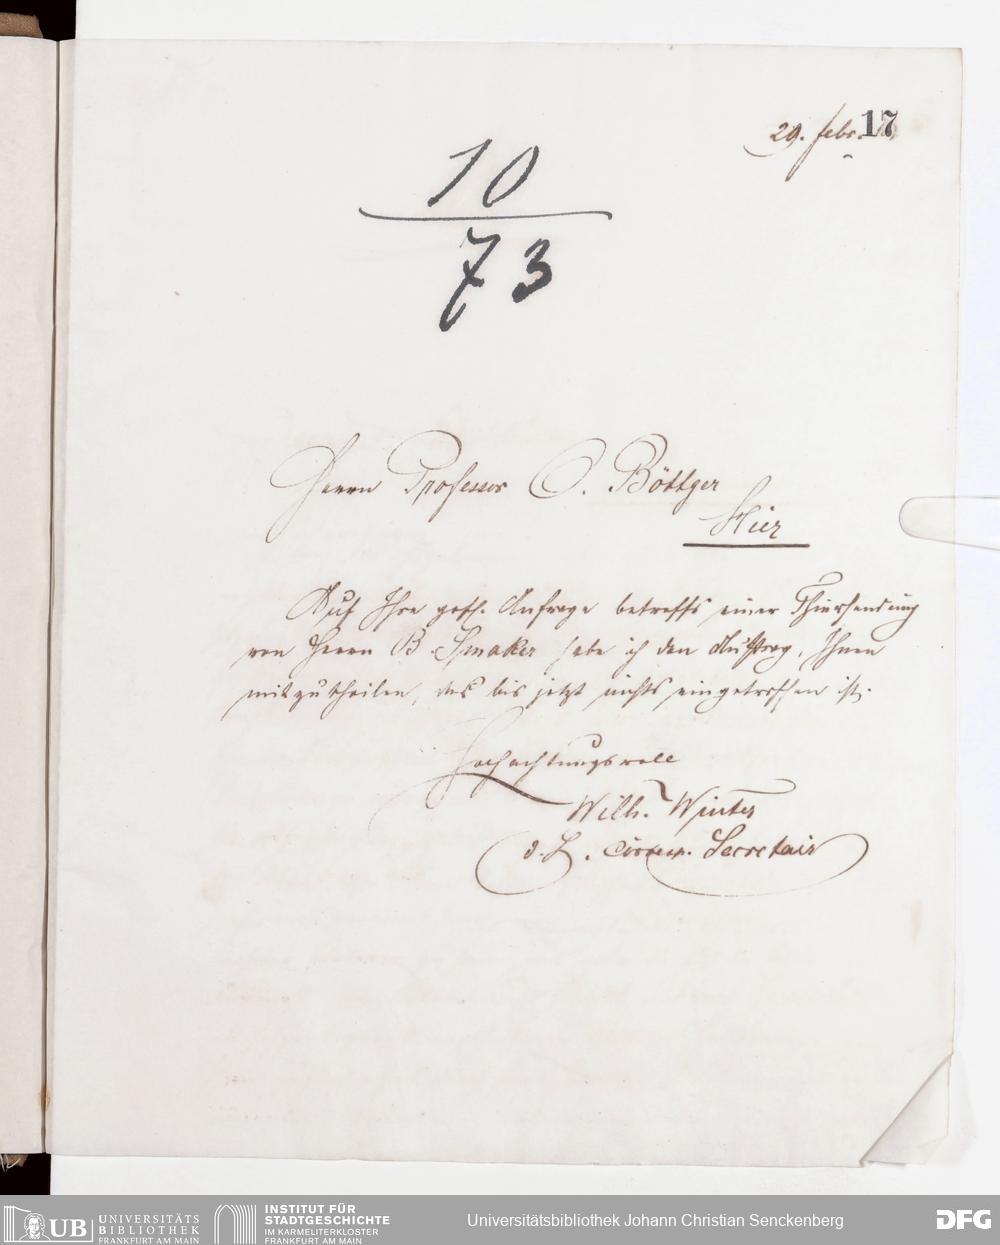 29. febr. 17
10
73
Herrn Professor O. Böttger
Hier
Auf Ihre gefl. Anfrage betreffs einer Thiersendung
von Herrn B. Schmaker habe ich den Auftrag, Ihnen
mitzutheilen, das bis jetzt nichts eingetroffen ist.
Hochachtungsvoll
Wilh. Winter
d. Z. corresp. Secretair
UB UNIVERSITÄTS
BIBLIOTHEK
FRANKFURT AM MAIN
INSTITUT FÜR
STADTGESCHICHTE
IM KARMELITERKLOSTER
FRANKFURT AM MAIN
Universitätsbibliothek Johann Christian Senckenberg
DFG